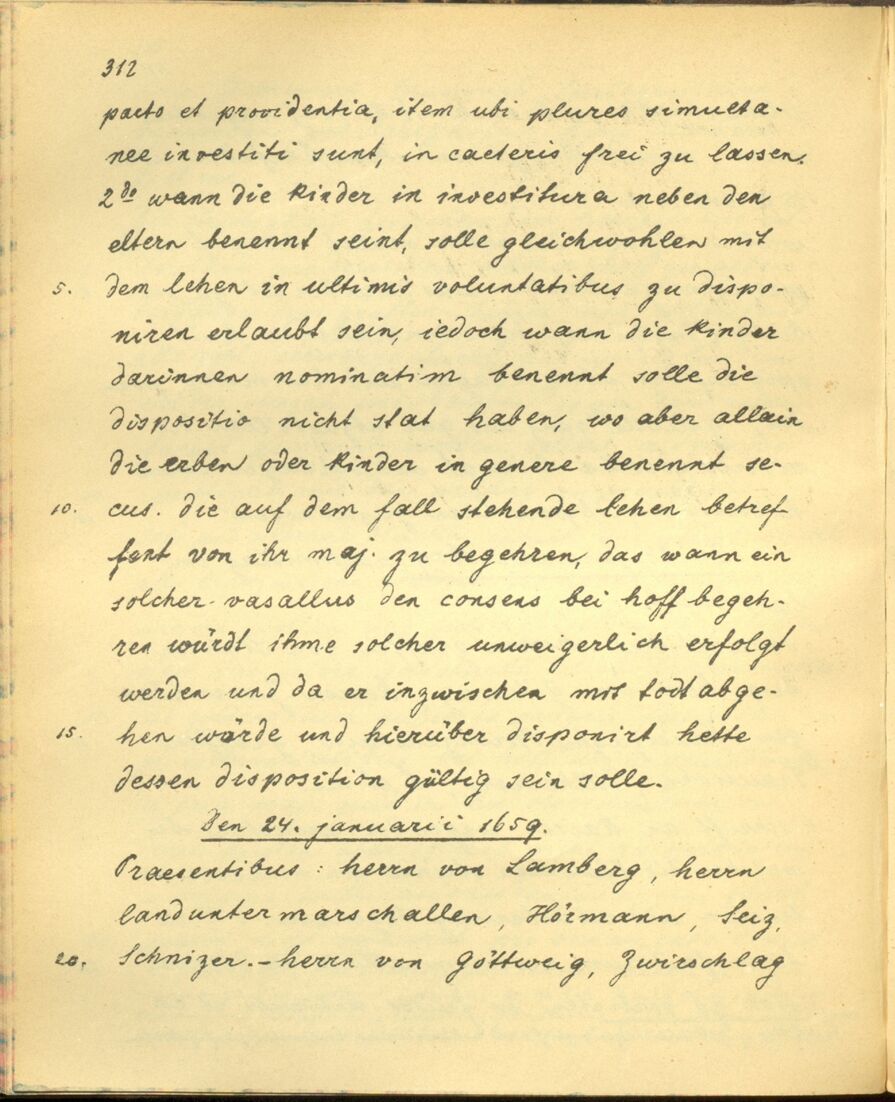 312
pacto et providentia, item ubi plures simulta-
nee investiti sunt, in caeteris frei zu lassen.
2do wann die kinder in investitura neben den
eltern benennt seint, solle gleichwohlen mit
5. dem lehen in ultimis voluntatibus zu dispo-
niren erlaubt sein, iedoch wann die kinder
darinnen nominatim benennt solle die
dispositio nicht stat haben, wo aber allain
die erben oder kinder in genere benennt se-
10. cus. die auf dem fall stehende lehen betref
fent von ihr maj. zu begehren, das wann ein
solcher vasallus den consens bei hoff begeh-
ren würdt ihme solcher unweigerlich erfolgt
werden und da er inzwischen mit todt abge-
15. hen würde und hierüber disponirt hette
dessen disposition gültig sein solle.
Den 24. januarii 1659.
Praesentibus: herrn von Lamberg, herrn
landuntermarschallen, Hörmann, Seiz,
20. Schnizer. - herrn von Göttweig, Zwirschlag